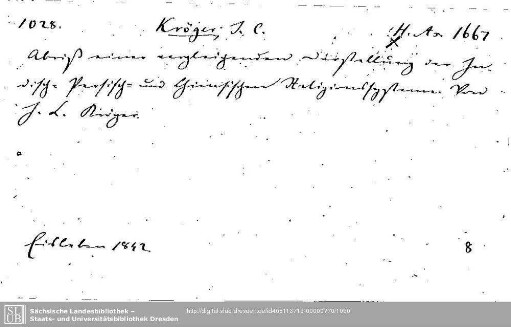 1028. Kröger, J. C. H. As. 1667
Abriß einer vergleichenden Darstellung der In-
disch- Persisch- und Chinesischen Religionssysteme. Von
J. C. Kröger.
Eisleben 1842 8
Sächsische Landesbibliothek –
Staats- und Universitätsbibliothek Dresden